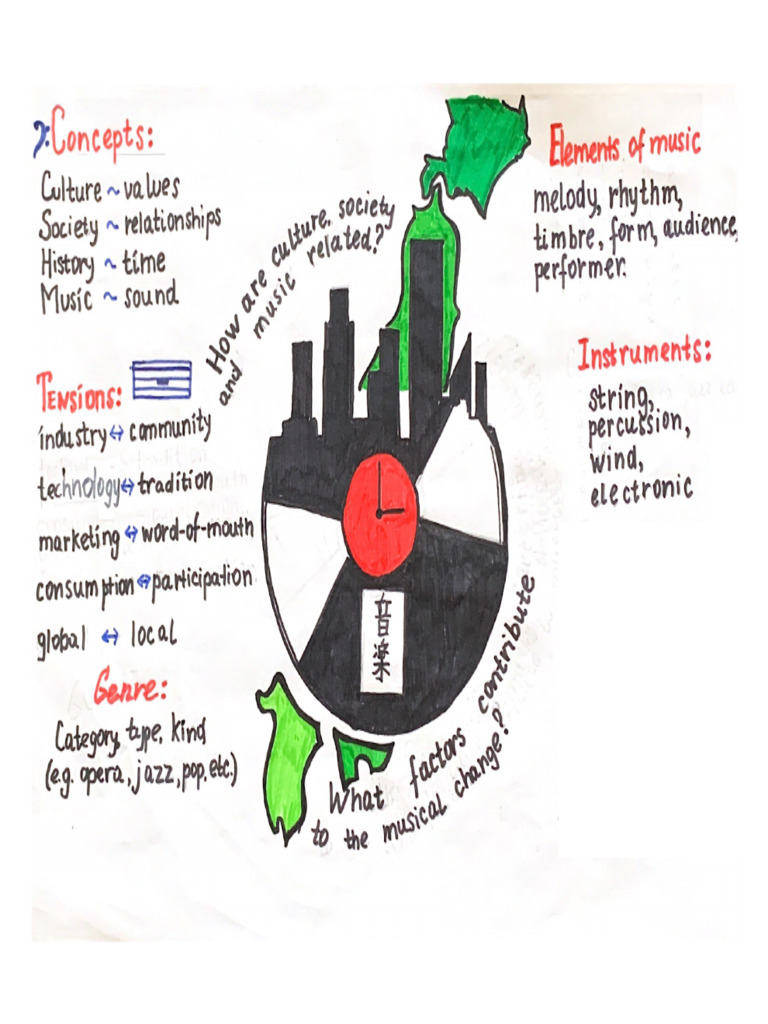 Concepts:
Culture ~ values
Society ~ relationships
History ~ time
Music ~ sound
Tensions:
industry ↔ community
technology ↔ tradition
marketing ↔ word-of-mouth
consumption ↔ participation
global ↔ local
Genre:
Category, type, kind,
(e.g. opera, jazz, pop, etc.)
How are culture, society
and music related?
音楽
What factors contribute
to the musical change?
Elements of music
melody, rhythm,
timbre, form, audience,
performer.
Instruments:
string,
percussion,
wind,
electronic